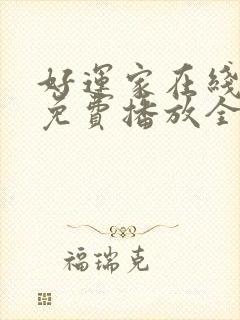 好運家在綫
免費播放全
福瑞克